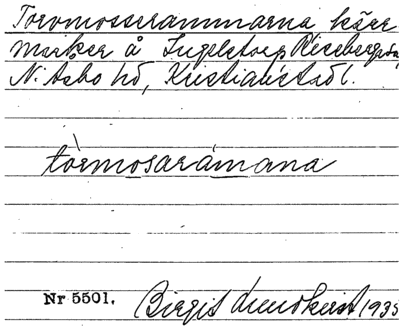 Torvmossrammarna kärr
marker å Ingelstorp Riseberga
N. Åsbo hd, Kristianst. l.
tòrmosarámana
Nr 5501. Birgit Lundkvist 1935